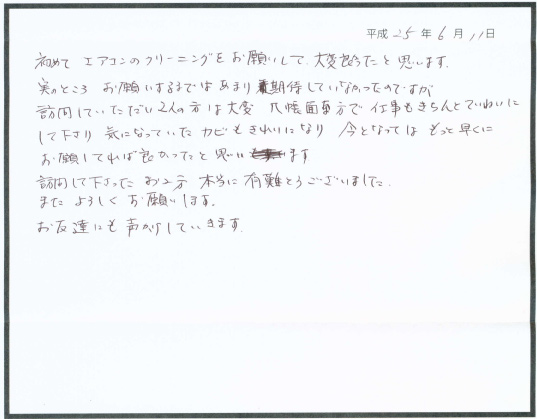 平成 25 年 6 月 11 日
初めて エアコンのクリーニングをお願いして、大変良かったと思います。
実のところ お願いするまではあまり 期待していなかったのですが
訪問していただいた2人の方は大変 几帳面な方で 仕事もきちんとていねいに
して下さり 気になっていた カビもきれいになり 今となっては もっと早くに
お願いしてれば良かったと思います
訪問して下さった お2方 本当に 有難とうございました。
また よろしく お願いします。
お友達にも 声かけしていきます。